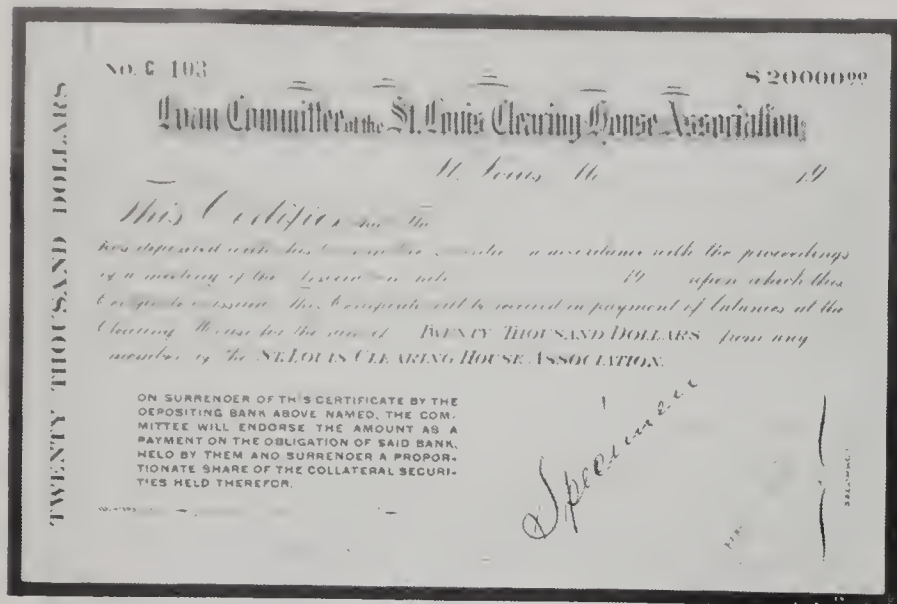 No. C 103
$20000 00
TWENTY THOUSAND DOLLARS
Loan Committee of the St. Louis Clearing House Association
St. Louis, Mo. 19
This Certifies that the
has deposited with this in accordance with the proceedings
of a meeting of the Association held 19 upon which this
Certificate is issued. This Certificate will be received in payment of balances at the
Clearing House for the sum of TWENTY THOUSAND DOLLARS from any
member of the ST. LOUIS CLEARING HOUSE ASSOCIATION.
ON SURRENDER OF THIS CERTIFICATE BY THE
DEPOSITING BANK ABOVE NAMED, THE COM-
MITTEE WILL ENDORSE THE AMOUNT AS A
PAYMENT ON THE OBLIGATION OF SAID BANK,
HELD BY THEM AND SURRENDER A PROPOR-
TIONATE SHARE OF THE COLLATERAL SECURI-
TIES HELD THEREFOR.
Specimen